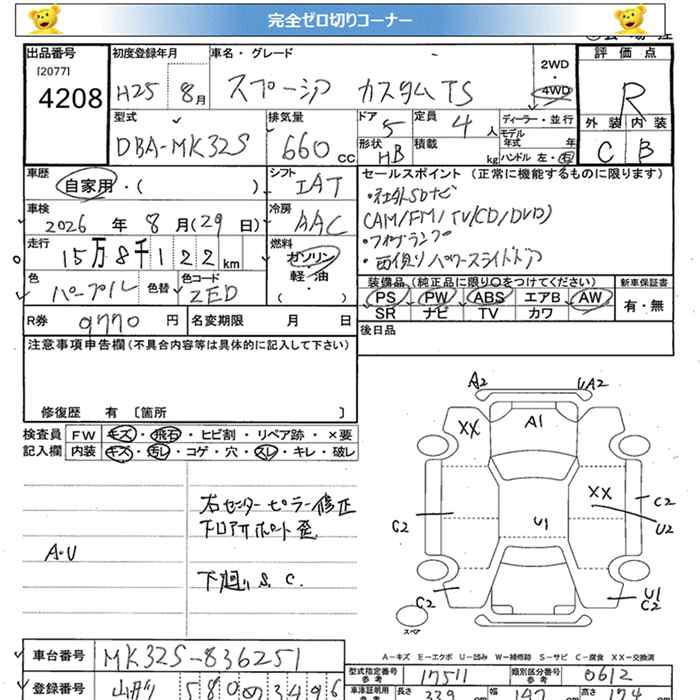 完全ゼロ切りコーナー
出品番号 初度登録年月 車名・グレード 2WD・4WD 評価点
[2077] 4208 H25 8月 スペーシア カスタムTS R
型式 排気量 ドア 定員 ディーラー・並行 外装 内装
DBA-MK32S 660cc 5 4人 モデル年式 年 C B
形状 HB 積載 kg ハンドル 左・右
車歴 自家用・( ) シフト IAT セールスポイント (正常に機能するものに限ります)
車検 2026年8月(29日) 冷房 AAC ・社外SDナビ
(AM/FM/TV/CD/DVD)
走行 15万8千122km 燃料 ガソリン・軽油・( ) ・フォグランプ
・両側パワースライドドア
色 パープル 色替 色コード ZED 装備品 (純正品に限り〇をつけてください) 新車保証書
PS PW ABS エアB AW 有・無
SR ナビ TV カワ
R券 9770円 名変期限 月 日 後日品
注意事項申告欄 (不具合内容等は具体的に記入して下さい)
修復歴 有 〔箇所 〕
検査員 FW キズ・飛石・ヒビ割・リペア跡・×要
記入欄 内装 キズ・汚レ・コゲ・穴・スレ・キレ・破レ
右センターピラー修正
A・U
下廻りS.C.
A2 UA2
XX A1
XX
C2 C2
U1 U2
C2 U1
C2
スペア
A-キズ E-エクボ U-凹み W-補修跡 S-サビ C-腐食 XX-交換済
車台番号 MK32S-836251
型式指定番号 参考 17511 類別区分番号 参考 0612
登録番号
車庫証明用 参考 長さ 339 幅 147 高さ 174